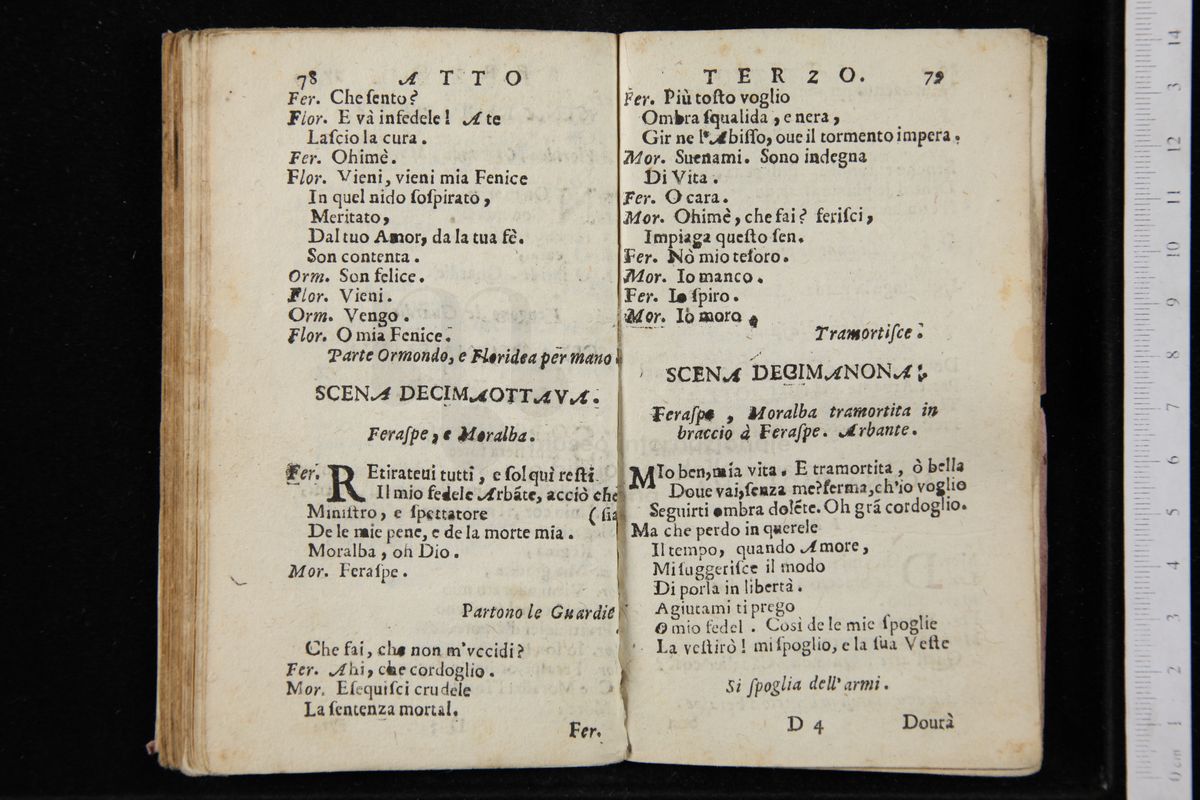 78 ATTO
Fer. Che ſento?
Flor. E và infedele! A te
Laſcio la cura.
Fer. Ohimè.
Flor. Vieni, vieni mia Fenice
In quel nido ſoſpirato,
Meritato,
Dal tuo Amor, da la tua fè.
Son contenta.
Orm. Son felice.
Flor. Vieni.
Orm. Vengo.
Flor. O mia Fenice.
Parte Ormondo, e Floridea per mano.
SCENA DECIMAOTTAVA.
Feraſpe, e Moralba.
Fer. REtirateui tutti, e ſol quì reſti
Il mio fedele Arbãte, acciò che
Miniſtro, e ſpettatore (ſia
De le mie pene, e de la morte mia.
Moralba, oh Dio.
Mor. Feraſpe.
Partono le Guardie
Che fai, che non m'vccidi?
Fer. Ahi, che cordoglio.
Mor. Eſequiſci crudele
La ſentenza mortal.
Fer.
TERZO. 79
Fer. Più toſto voglio
Ombra ſqualida, e nera,
Gir ne l'Abiſſo, oue il tormento impera.
Mor. Suenami. Sono indegna
Di Vita.
Fer. O cara.
Mor. Ohimè, che fai? feriſci,
Impiaga queſto ſen.
Fer. Nò mio teſoro.
Mor. Io manco.
Fer. Io ſpiro.
Mor. Iò moro.
Tramortiſce.
SCENA DECIMANONA.
Feraſpe, Moralba tramortita in
braccio à Feraſpe. Arbante.
MIo ben, mia vita. E tramortita, ò bella
Doue vai, ſenza me? ferma, ch'io voglio
Seguirti ombra dolẽte. Oh grã cordoglio.
Ma che perdo in querele
Il tempo, quando Amore,
Mi ſuggeriſce il modo
Di porla in libertà.
Agiutami ti prego
O mio fedel. Cosi de le mie ſpoglie
La veſtirò! mi ſpoglio, e la ſua Veſte
Si ſpoglia dell'armi.
D 4 Dourà